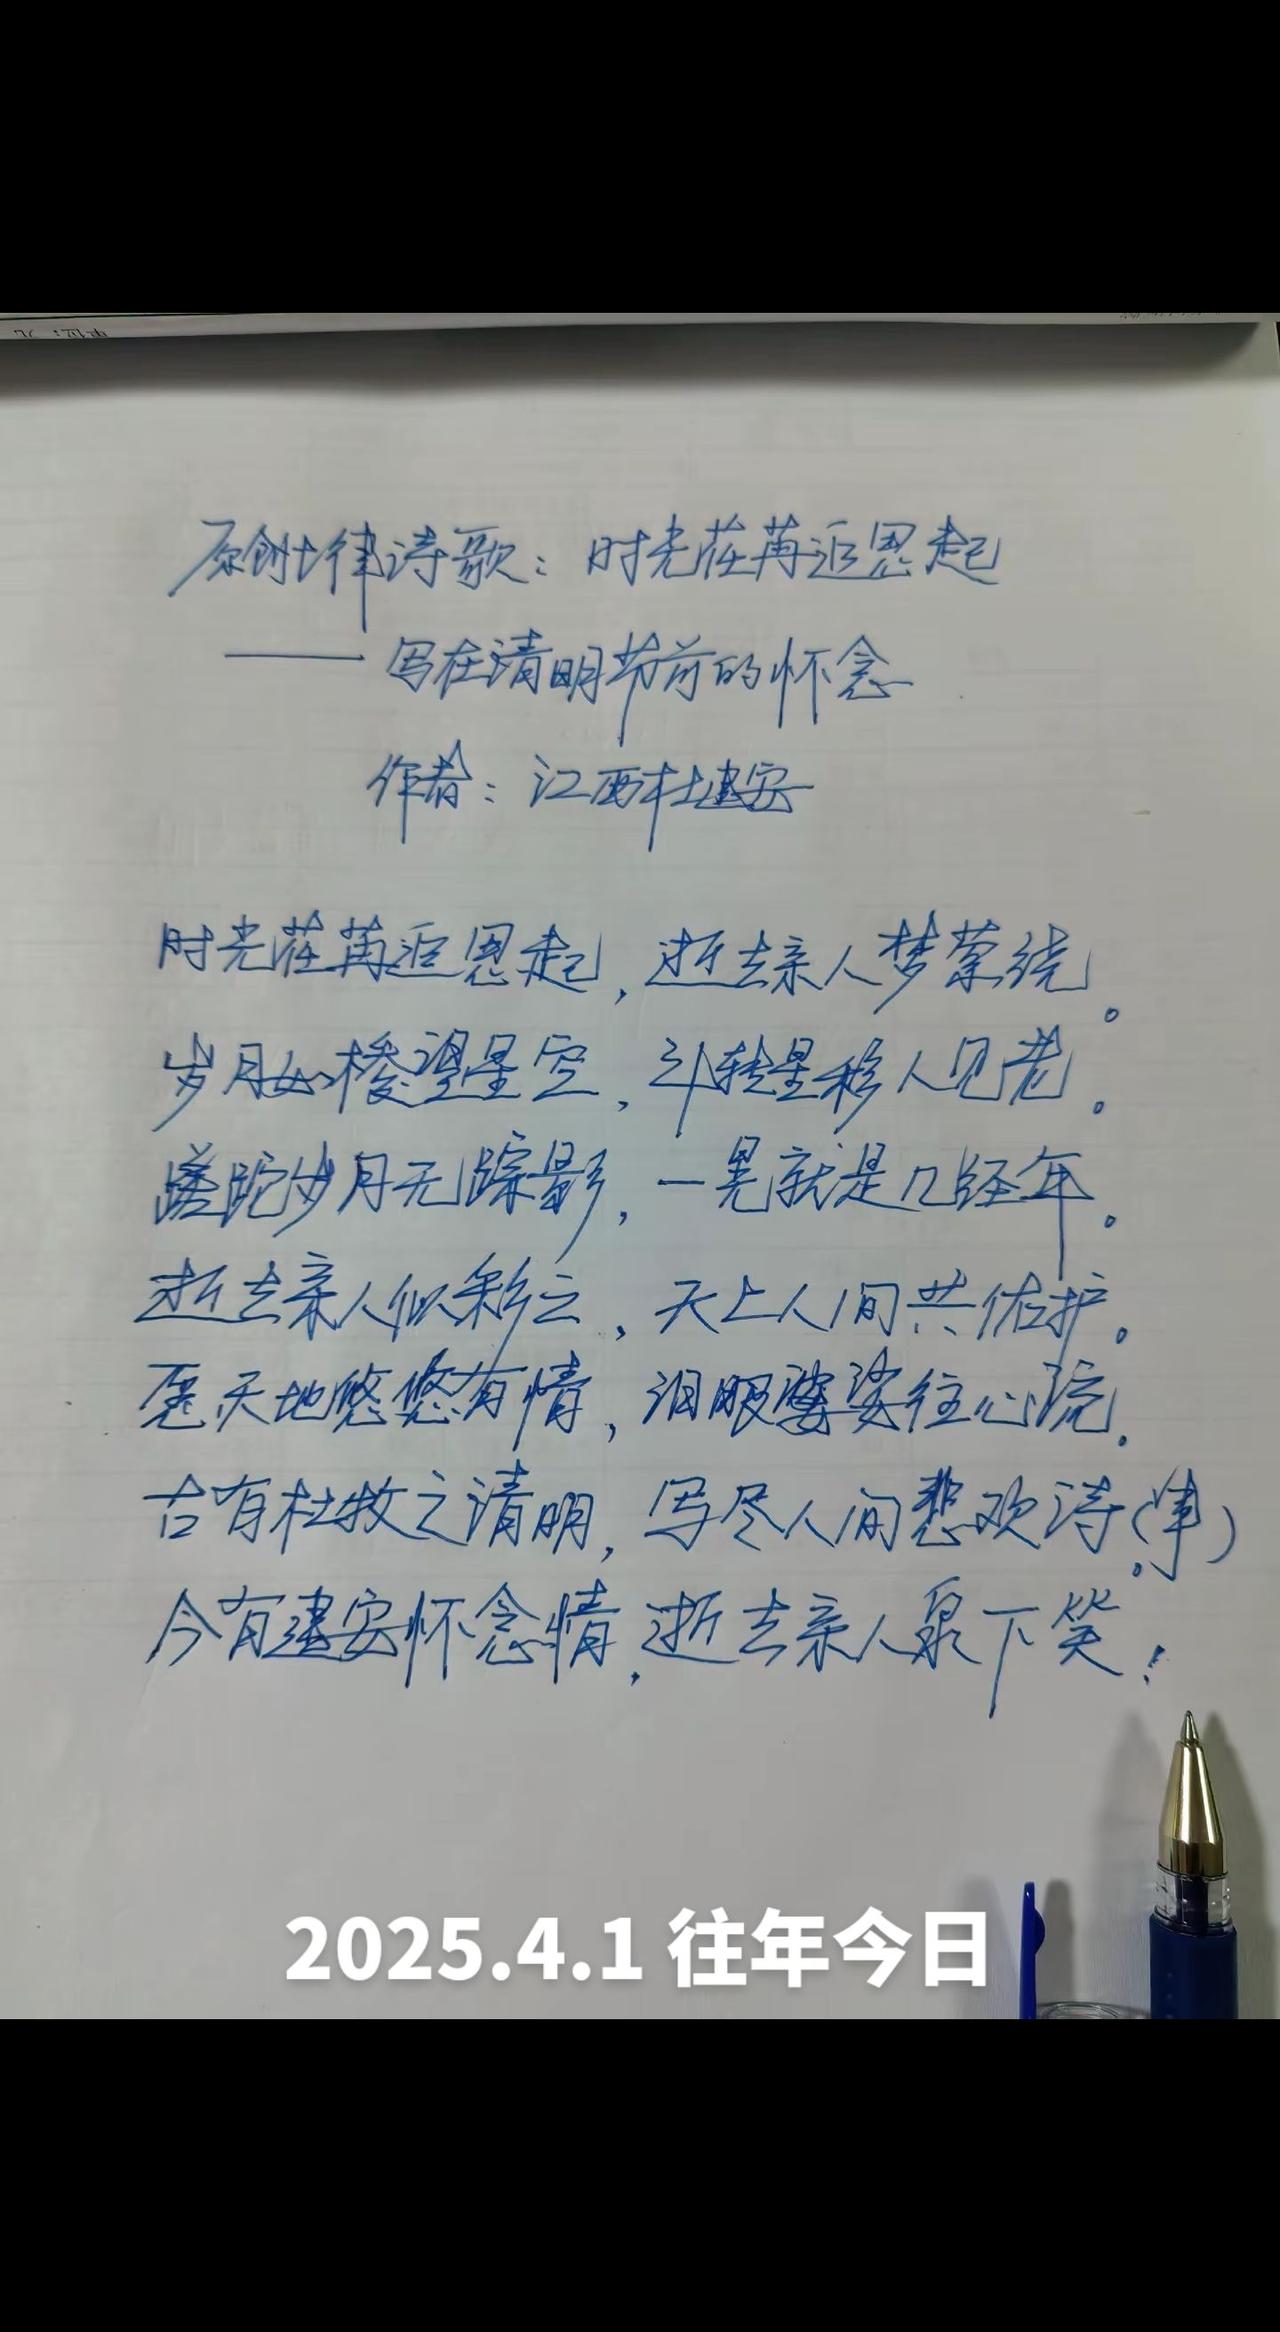 单位:元
原创七律诗歌：时光荏苒追恩起
——写在清明节前的怀念
作者：江西杜建安
时光荏苒追恩起，逝去亲人梦萦绕。
岁月如梭望星空，斗转星移人见老。
蹉跎岁月无踪影，一晃就是几经年。
逝去亲人似彩云，天上人间共佑护。
冕天地悠悠有情，泪眼婆娑往心流.
古有杜牧之清明，写尽人间悲欢诗(事)。
今有建安怀念情，逝去亲人泉下笑！
2025.4.1 往年今日